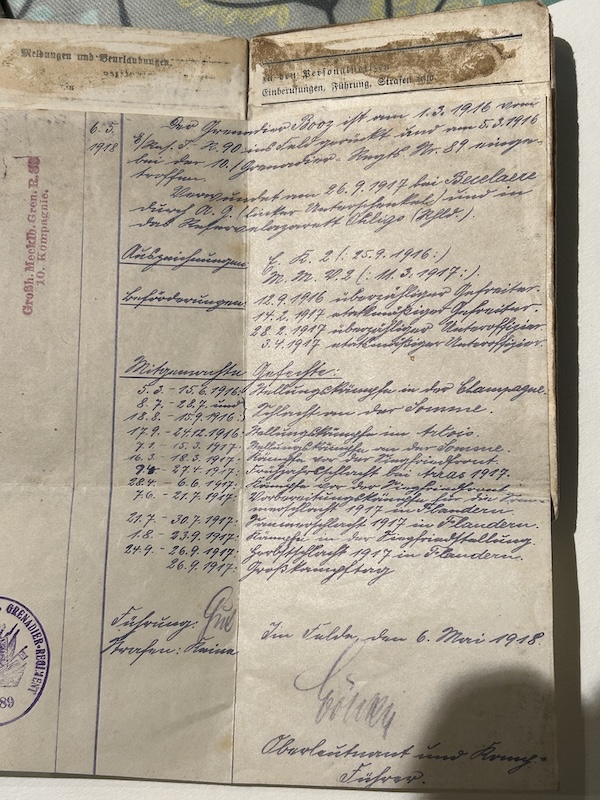 Meldungen und Beurlaubungen.
zu den Personalnotizen
Einberufungen, Führung, Strafen usw.
6. 5.
1918
Großh. Mecklb. Gren. R. 89
10. Kompagnie.
Der Grenadier Booz ist am 1.3.1916 vom
E/Res. J. R. 90 ins Feld gerückt und am 5.3.1916
bei der 10./Grenadier-Regts Nr. 89 einge-
troffen.
Verwundet am 26.9.1917 bei Becelaere
durch A. G. (linker Unterschenkel) und in
das Reservelazarett (Rhld.).
Auszeichnungen E. K. 2 (: 25.9.1916:)
M. M. V. 2 (: 11.3.1917:).
Beförderungen 12.9.1916 überzähliger Gefreiter.
14.2.1917 etatsmäßiger Gefreiter.
28.2.1917 überzähliger Unteroffizier.
3.4.1917 etatsmäßiger Unteroffizier.
Mitgemachte Gefechte:
5.3. - 15.6.1916: Stellungskämpfe in der Champagne.
8.7. - 28.7. und
18.8. - 15.9.1916: Schlacht an der Somme.
17.9. - 27.12.1916 Stellungskämpfe im Artois.
7.1. - 15.3.1917. Stellungskämpfe an der Somme.
16.3. - 18.3.1917. Kämpfe vor der Siegfriedfront.
- 27.4.1917. Frühjahrsschlacht bei Arras 1917.
28.4. - 6.6.1917. Kämpfe vor der Siegfriedfront.
7.6. - 21.7.1917. Vorbereitungskämpfe für die Som-
merschlacht 1917 in Flandern.
21.7. - 30.7.1917. Sommerschlacht 1917 in Flandern.
1.8. - 23.9.1917. Kämpfe in der Siegfriedstellung.
24.9. - 26.9.1917. Herbstschlacht 1917 in Flandern.
26.9.1917. Großkampftag
Führung: Gut
Strafen: Keine
Im Felde, den 6. Mai 1918.
GRENADIER-REGIMENT
89
Oberleutnant und Komp-
Führer.